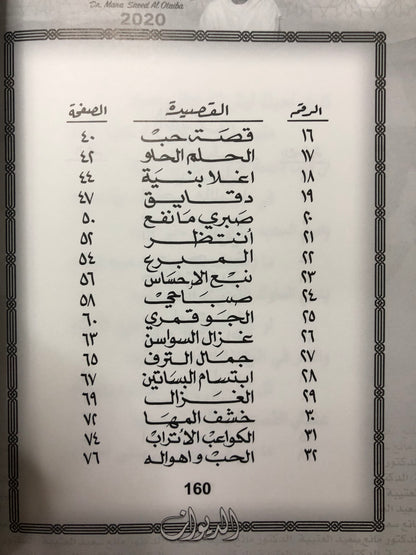 Dr. Mana Saeed Al Otaiba
2020
الرقم القصيدة الصفحة
١٦ قصة حب ٤٠
١٧ الحلم الحلو ٤٢
١٨ اغلا بنية ٤٤
١٩ دقايق ٤٧
٢٠ صبري مانفع ٥٠
٢١ أنتظر ٥٢
٢٢ المبرع ٥٤
٢٣ نبع الإحساس ٥٦
٢٤ صباحي ٥٨
٢٥ الجو قمري ٦٠
٢٦ غزال السواسن ٦٣
٢٧ جمال الترف ٦٥
٢٨ ابتسام البساتين ٦٧
٢٩ الغزال ٦٩
٣٠ خشف المها ٧٢
٣١ الكواعب الأتراب ٧٤
٣٢ الحب واهواله ٧٦
160
الديوان